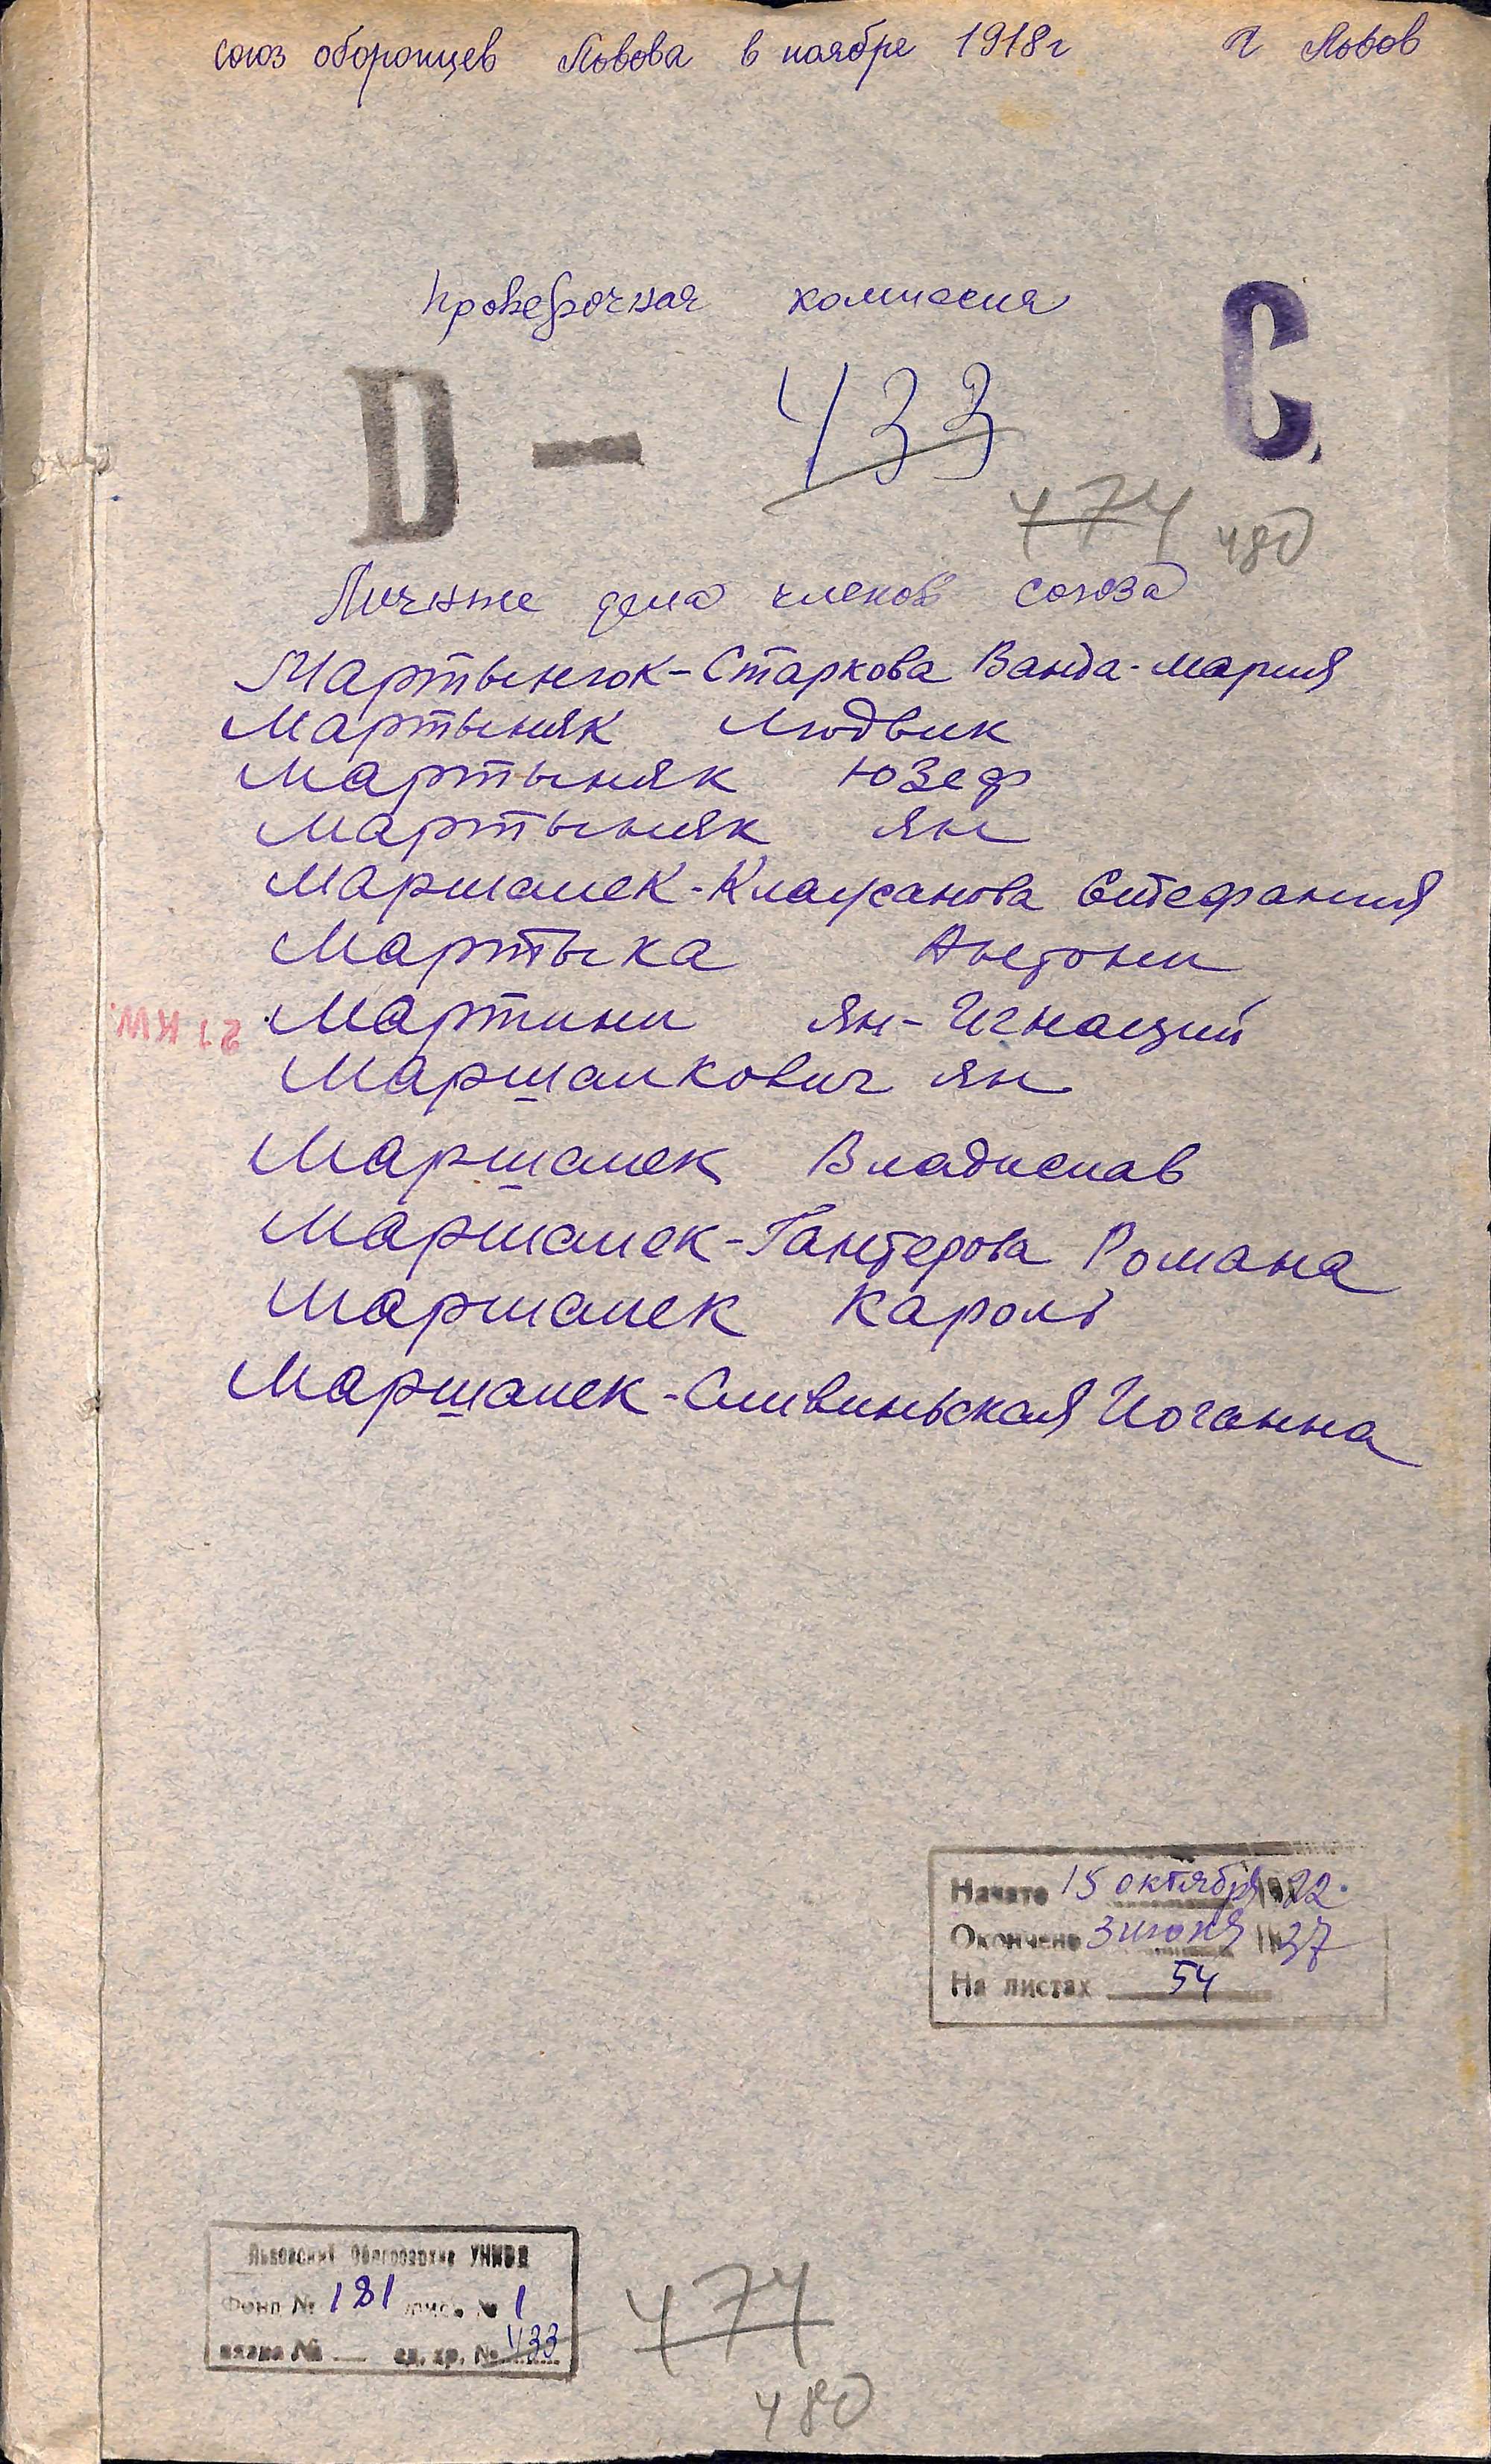 союз оборонцев Львова в ноябре 1918 г г Львов
проверочная комиссия
C.
D — 433
474 480
Личные дела членов союза
Мартынюк-Старкова Ванда-Мария
Мартыняк Людвик
Мартыняк Юзеф
Мартыняк Ян
Маршалек-Клаусанова Стефания
Мартыка Антони
Мартини Ян-Игнаций
Маршалкович Ян
Маршалек Владислав
Маршалек-Гантерова Романа
Маршалек Кароль
Маршалек-Сливиньская Иоганна
Начато 15 октября 1922.
Окончено 3 июня 1937
На листах 54
Львовский Облгосархив УНКВД
Фонд № 181 опись № 1
вязка № ед. хр. № 433
474
480